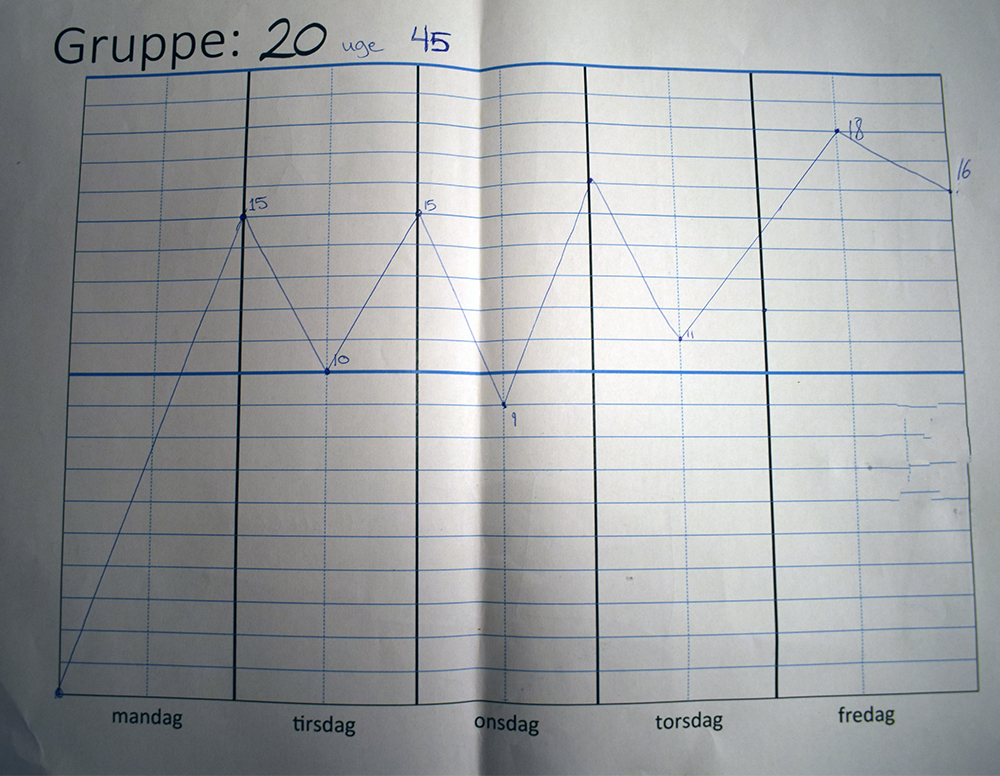 Gruppe: 20 uge 45
18
16
15
15
10
11
9
mandag tirsdag onsdag torsdag fredag